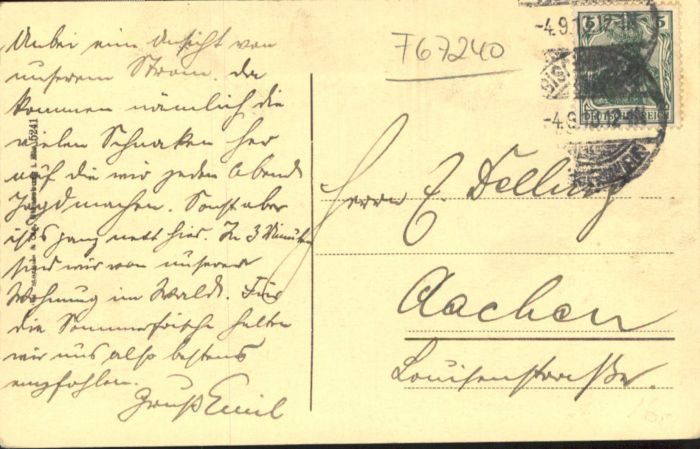 Anbei eine Ansicht von
unserem Strom. Da
kommen nämlich die
vielen Schnaken her
auf die wir jeden Abend
Jagd machen. Sonst aber
ist's ganz nett hier. In 3 Minuten
sind wir von unserer
Wohnung im Wald. Für
die Sommerfrische halten
wir uns also bestens
empfohlen.
Gruß Emil
F67240
-4.9.10.12-1
5 5
DEUTSCHES REICH
-4.9.10.12-1
Herrn E. Delling
Aachen
Louisenstraße.
5241